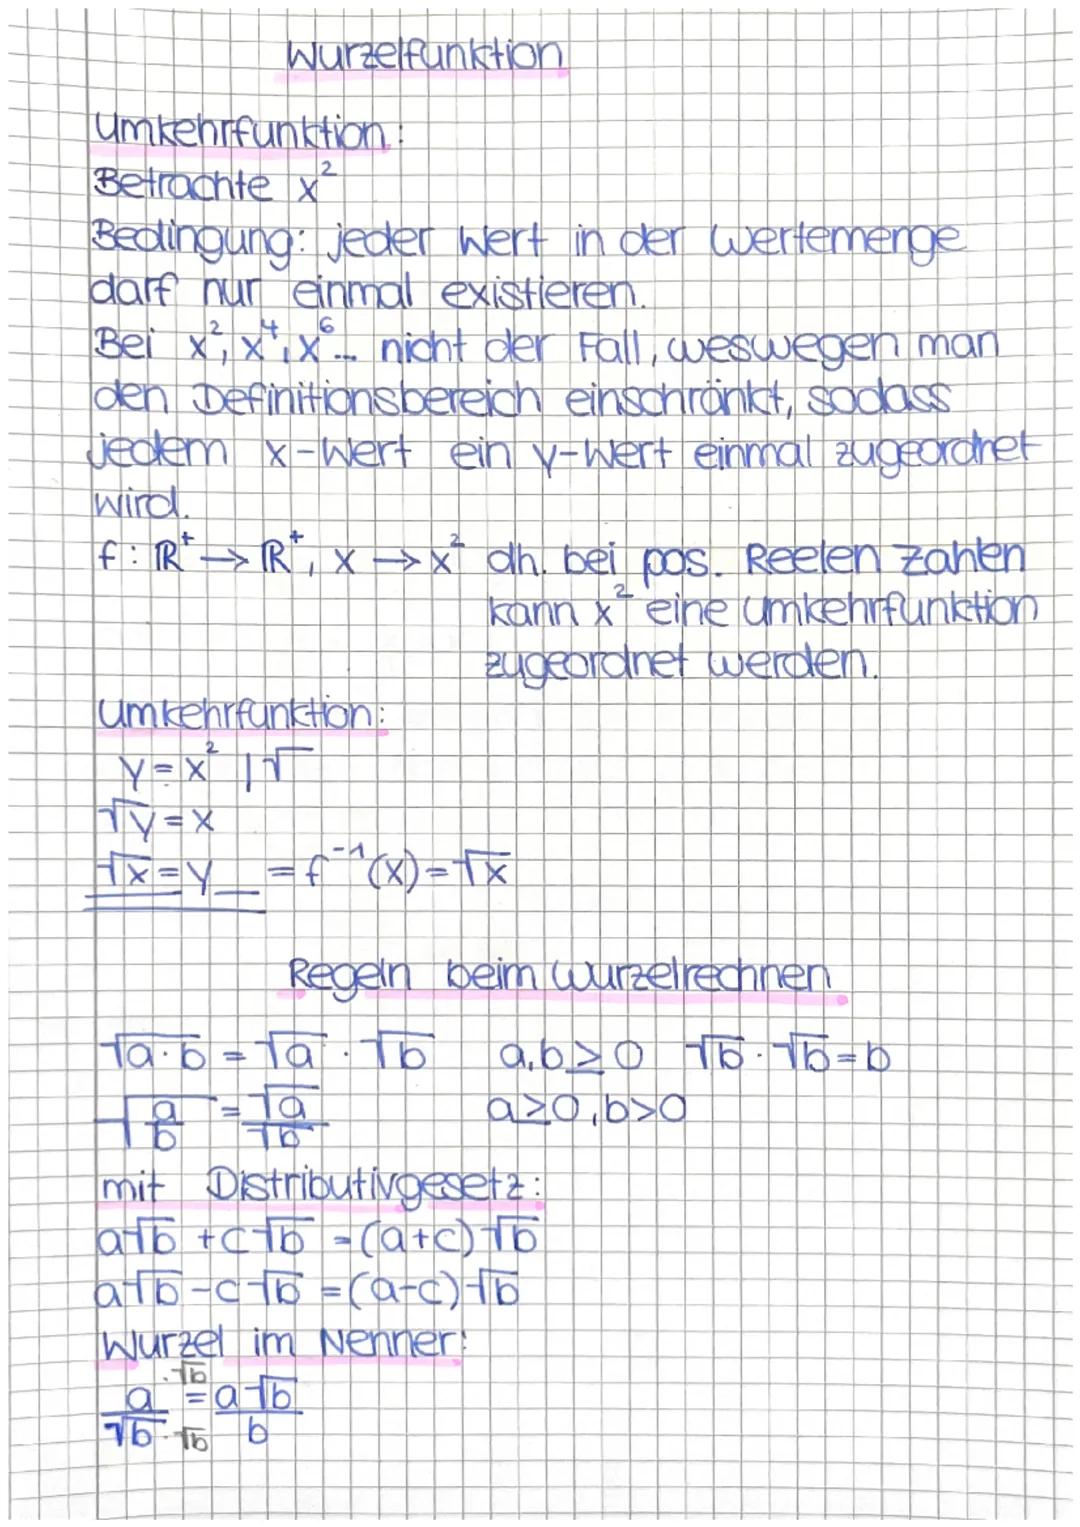 Wurzelfunktion
Umkehrfunktion:
Betrachte x²
Bedingung: jeder Wert in der Wertemenge
darf nur einmal existieren.
Bei x², x⁴, x⁶... nicht der Fall, weswegen man
den Definitionsbereich einschränkt, sodass
jedem x-Wert ein y-Wert einmal zugeordnet
wird.
f: ℝ⁺ → ℝ⁺, x → x² dh. bei pos. Reelen Zahlen
kann x² eine Umkehrfunktion
zugeordnet werden.
Umkehrfunktion:
y = x² | √
√y = x
√x = y = f⁻¹(x) = √x
Regeln beim Wurzelrechnen
√(a·b) = √a · √b a,b ≥ 0 √b · √b = b
√(a/b) = √a/√b a ≥ 0, b > 0
mit Distributivgesetz:
a√b + c√b = (a+c)√b
a√b - c√b = (a-c)√b
Wurzel im Nenner:
a·√b / √b·√b = a√b / b